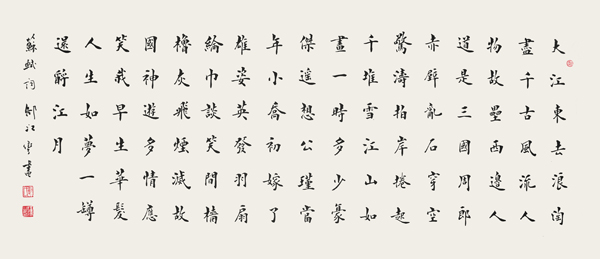 大江東去浪淘
盡千古風流人
物故壘西邊人
道是三國周郎
赤壁亂石穿空
驚濤拍岸捲起
千堆雪江山如
畫一時多少豪
傑遙想公瑾當
年小喬初嫁了
雄姿英發羽扇
綸巾談笑間檣
櫓灰飛煙滅故
國神遊多情應
笑我早生華髮
人生如夢一罇
還酹江月
蘇軾詞